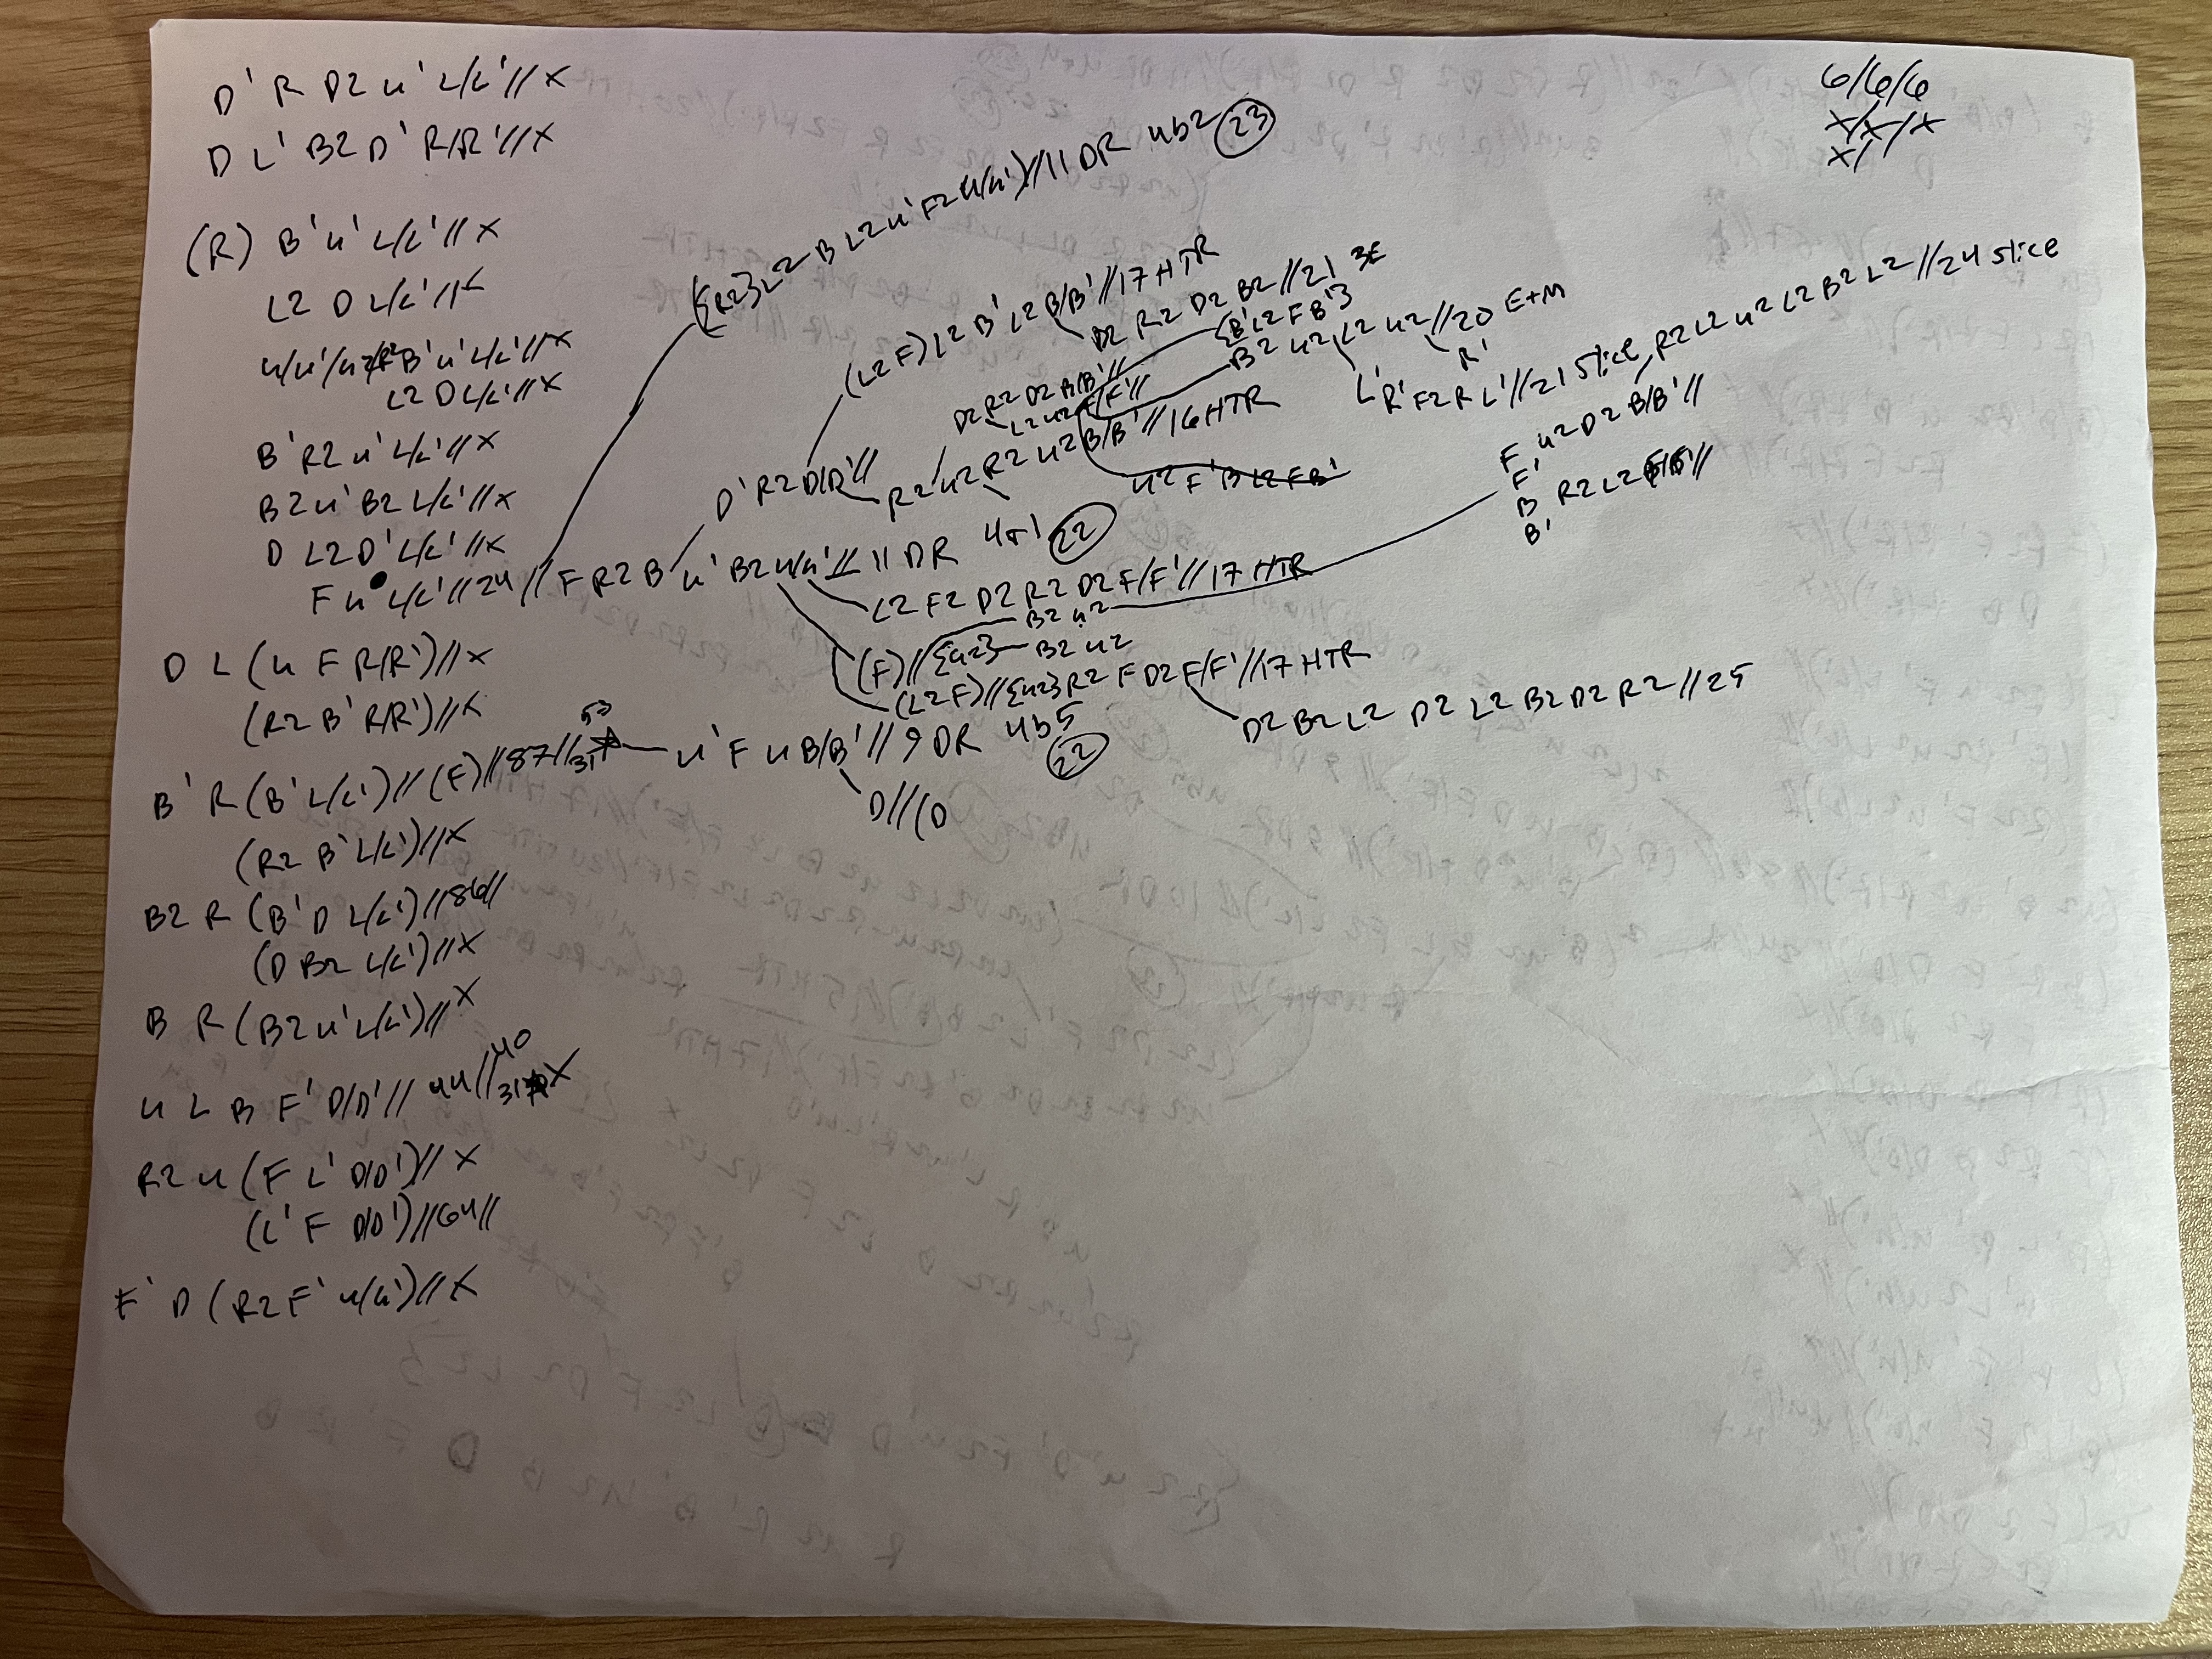 D' R D2 u' L/L' // X
D L' B2 D' R/R' // X
(R) B' u' L/L' // X
L2 D L/L' // X
u/u'/u2/ B' u' L/L' // X
L2 D L/L' // X
B' R2 u' L/L' // X
B2 u' B2 L/L' // X
D L2 D' L/L' // X
F u L/L' // 24 // F R2 B u' B2 u/u' // 11 DR 4b1 (22)
({R2} L2 B L2 u' F2 u/u') // 11 DR 4b2 (23)
D' R2 D/D' //
(L2 F) L2 B' L2 B/B' // 17 HTR
D2 R2 D2 B2 // 21 3E
R2 u2 R2 u2 B/B' // 16 HTR
D2 R2 D2 B/B' //
L2 u2 F/F' //
{B' L2 F B'}
B2 u2 L2 u2 // 20 E+M
R'
L' R' F2 R L' // 21 slice
R2 L2 u2 L2 B2 L2 // 24 slice
u2 F' B L2 F B'
L2 F2 D2 R2 D2 F/F' // 17 HTR
B2 u2
(F) // {u2} B2 u2
F, u2 D2 B/B' //
F'
B R2 L2 //
B'
(L2 F) // {u2} R2 F D2 F/F' // 17 HTR
D2 B2 L2 D2 L2 B2 D2 R2 // 25
D L (u F R/R') // X
(R2 B' R/R') // X
B' R (B' L/L') // (F) // 87 // 31 53 u' F u B/B' // 9 DR 4b5 (22)
D // (D
(R2 B' L/L') // X
B2 R (B' D L/L') // 86 //
(D B2 L/L') // X
B R (B2 u' L/L') // X
u L B F' D/D' // 44 // 40 31 X
R2 u (F L' D/D') // X
(L' F D/D') // 64 //
F' D (R2 F' u/u') // X
6/6/6
X/X/X
X/